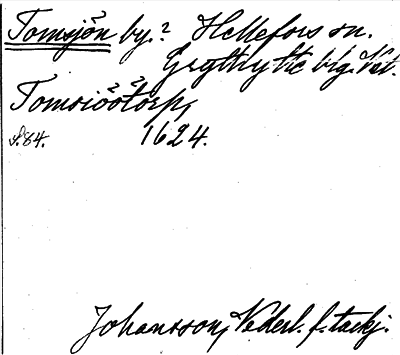 Tomsjön by.? Hellefors sn.
Grythytte blg. Vst.
Tomsiöötorp,
s.84. 1624.
Johansson, Nederl. f. tackj.